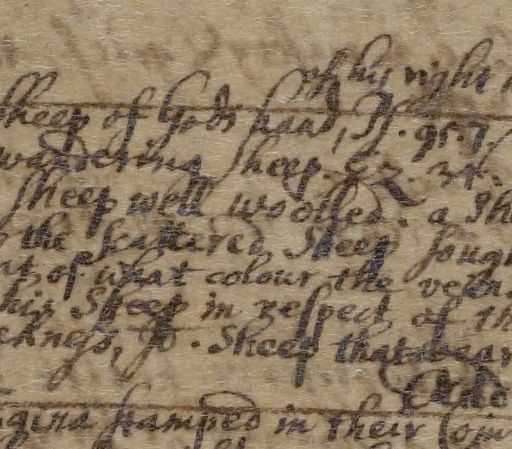 of his right
sheep of Gods hand, Ps. 95. 7.
wandering sheep. Ez. 34.
sheep well woolled. a Sh
the scattered Sheep sough
at of what colour the vein
his Sheep in respect of th
kings, so. Sheep that wear
gina stamped in their Coin